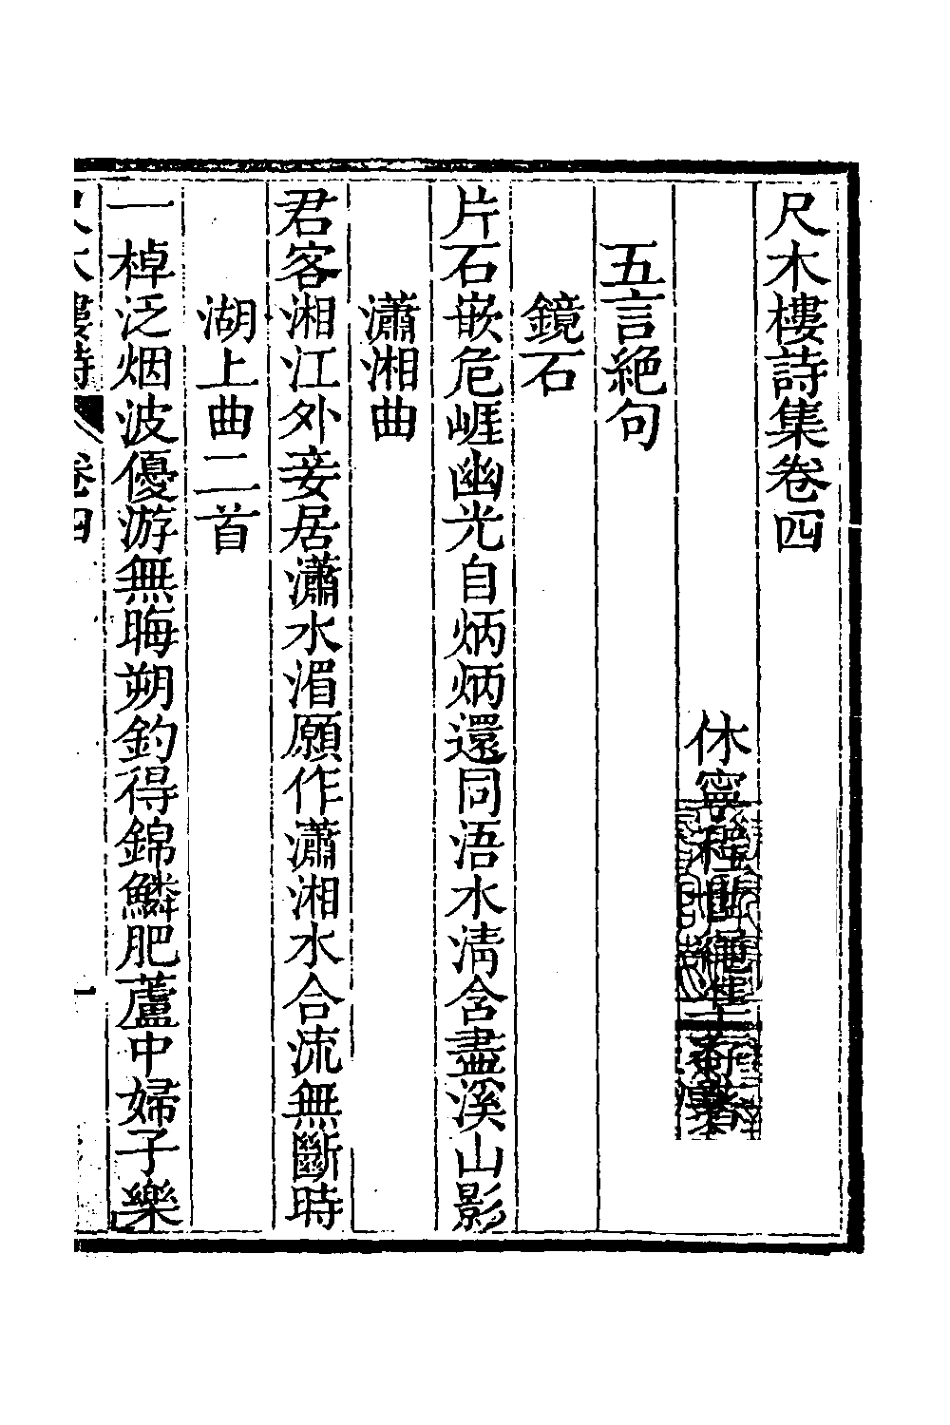 尺木樓詩集卷四
休寧程世繩著
五言絶句
鏡石
片石嵌危崕幽光自炳炳還同浯水清含盡溪山影
瀟湘曲
君客湘江外妾居瀟水湄願作瀟湘水合流無斷時
湖上曲二首
一棹泛烟波優游無晦朔釣得錦鱗肥蘆中婦子樂
尺木樓詩 卷四 一